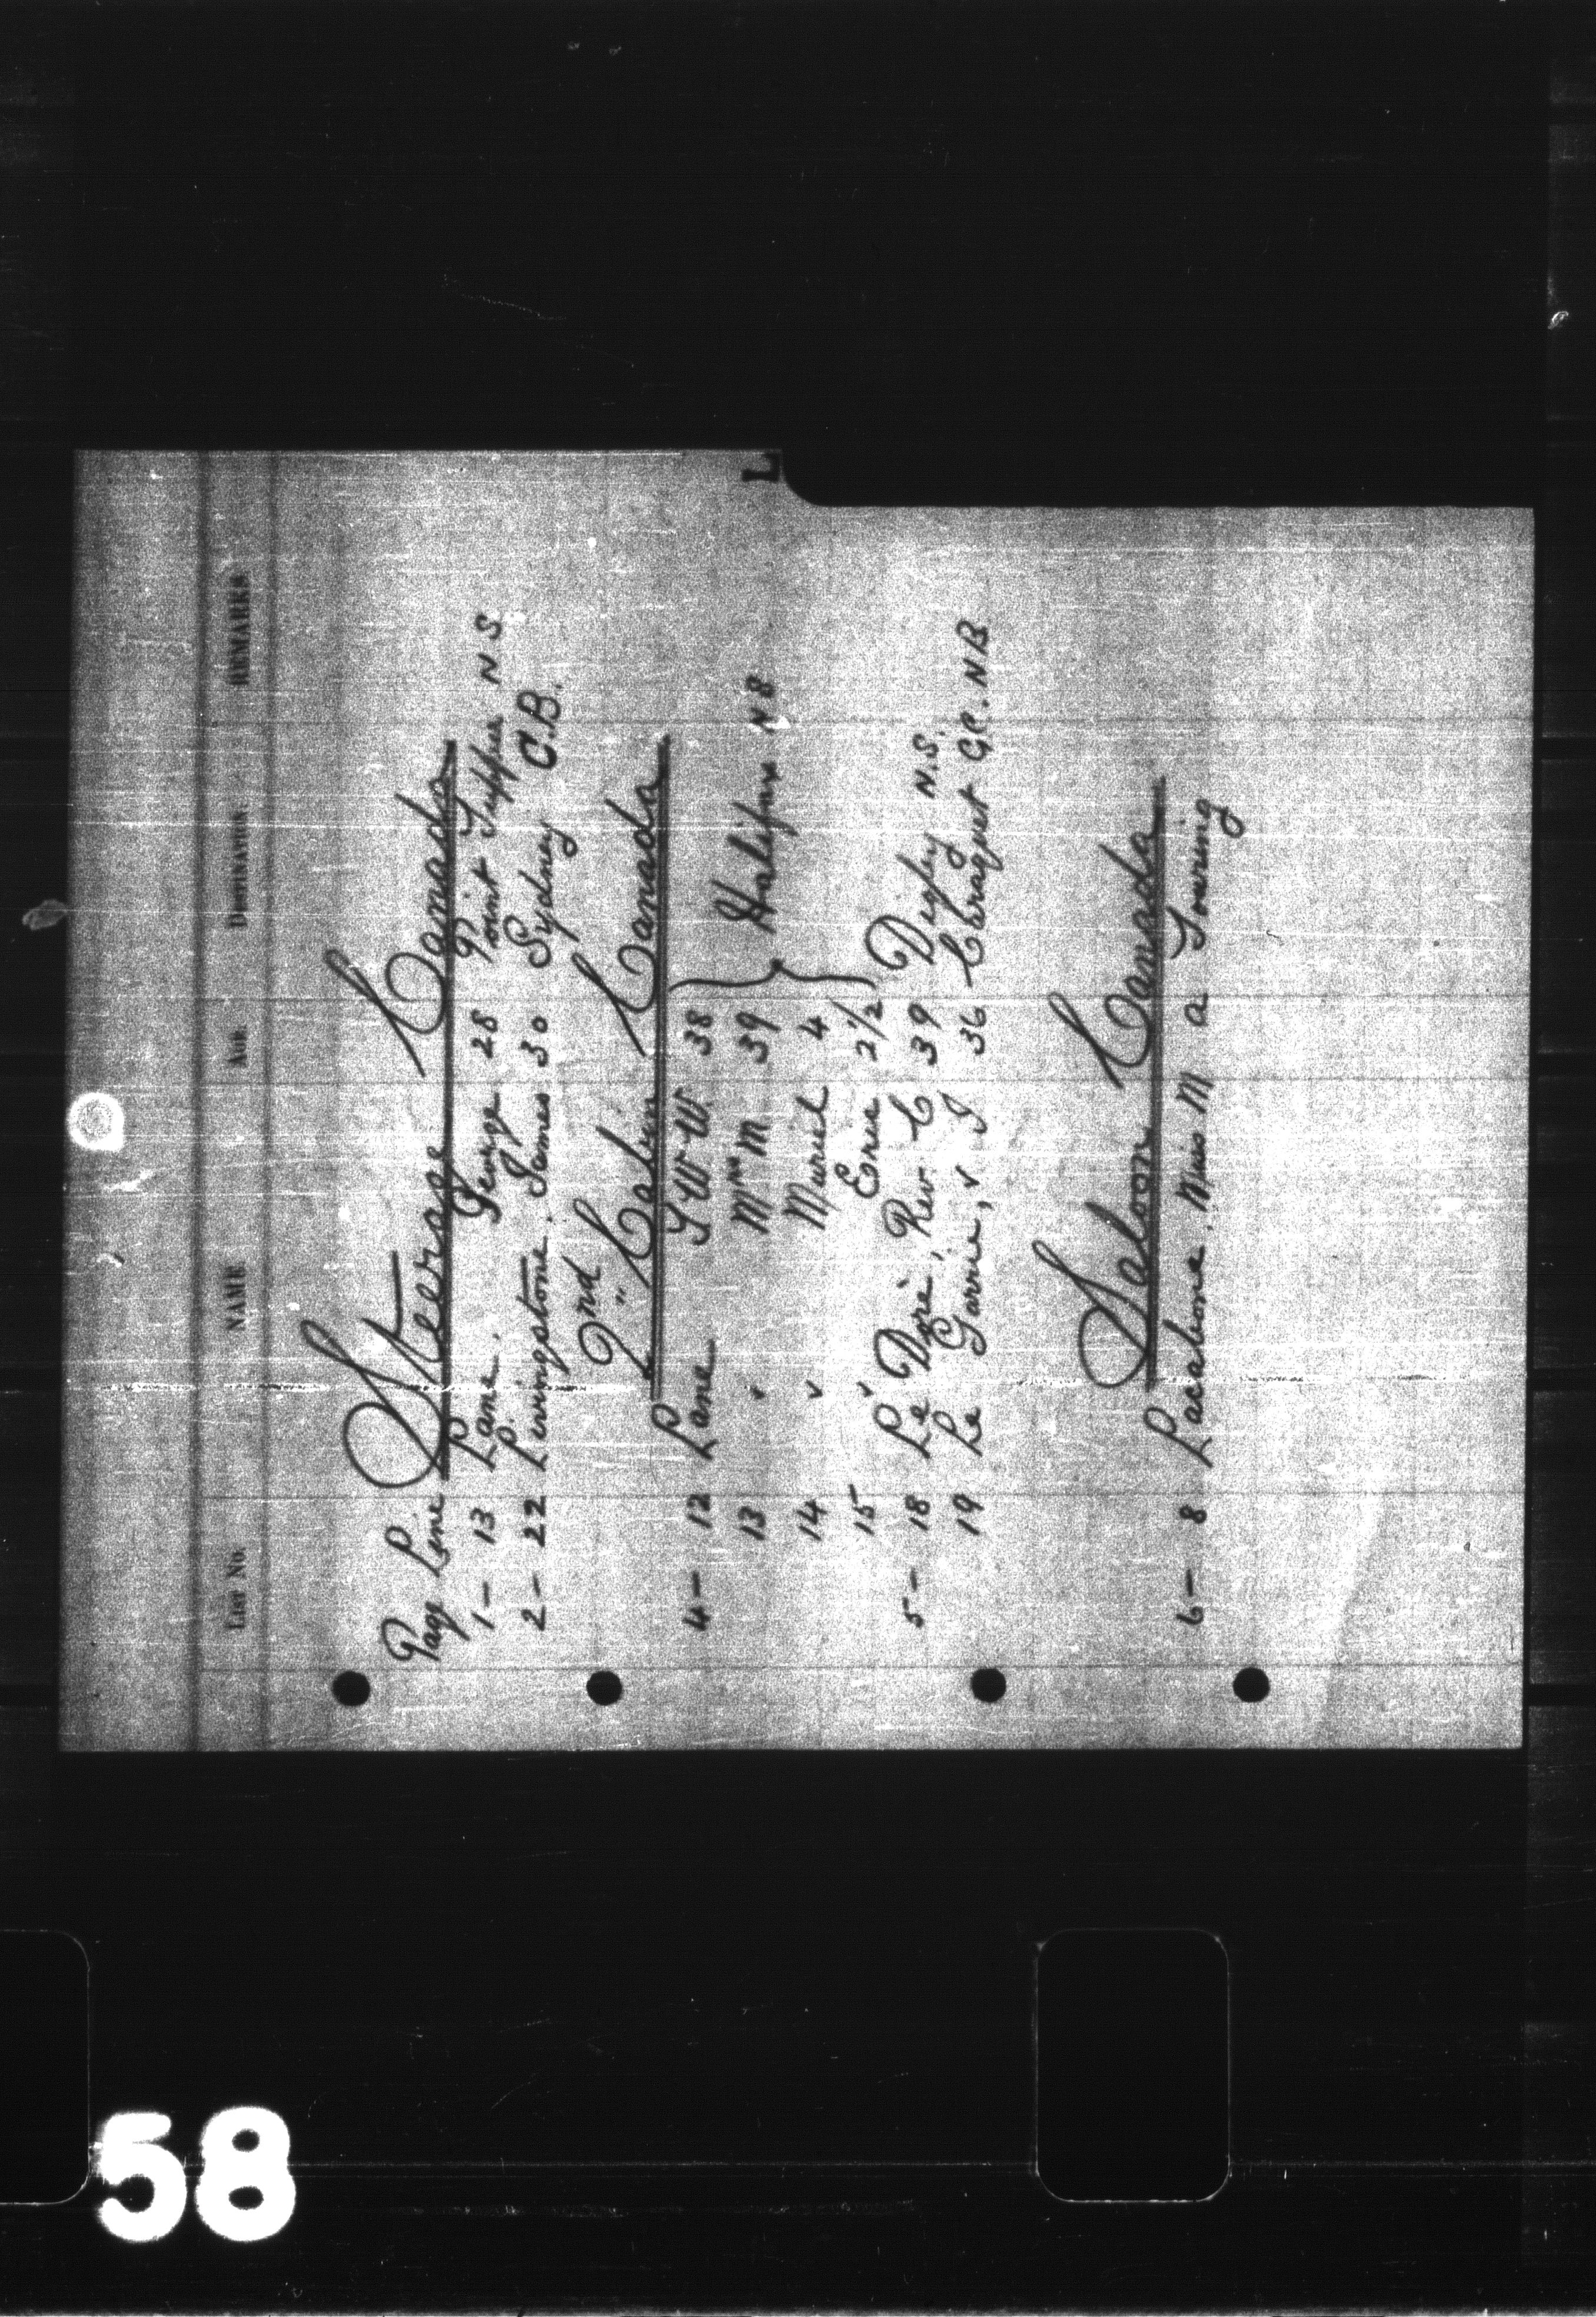 L
LIST No. NAME AGE DESTINATION REMARKS
Page Line Steerage Canada
1- 13 Lane. George 28 Point Tupper N S
2- 22 Livingstone. James 30 Sydney C.B.
2nd Cabin Canada
4- 12 Lane 38
13 " Mrs M 39
Halifax N S
14 " Muriel 4
15 " 2 1/2
5- 18 Le Doré, Rev. C 39 Digby N.S.
19 Le Garrie, " J 36 Caraquet N B
Saloon Canada
6- 8 Miss M a Touring
58